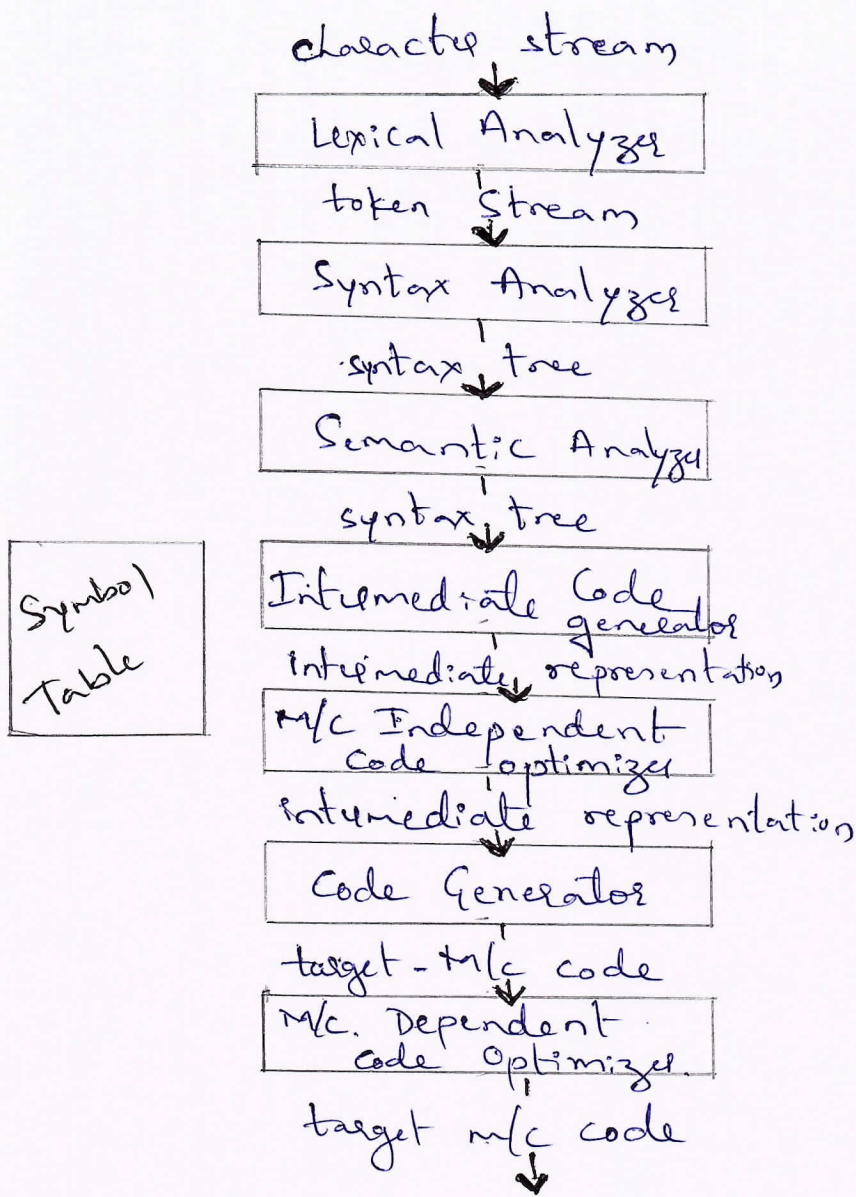 character stream
Lexical Analyzer
token Stream
Syntax Analyzer
syntax tree
Semantic Analyzer
syntax tree
Symbol
Table
Intermediate Code
generator
intermediate representation
M/C Independent
Code optimizer
intermediate representation
Code Generator
target-M/c code
M/c. Dependent
code Optimizer.
target m/c code